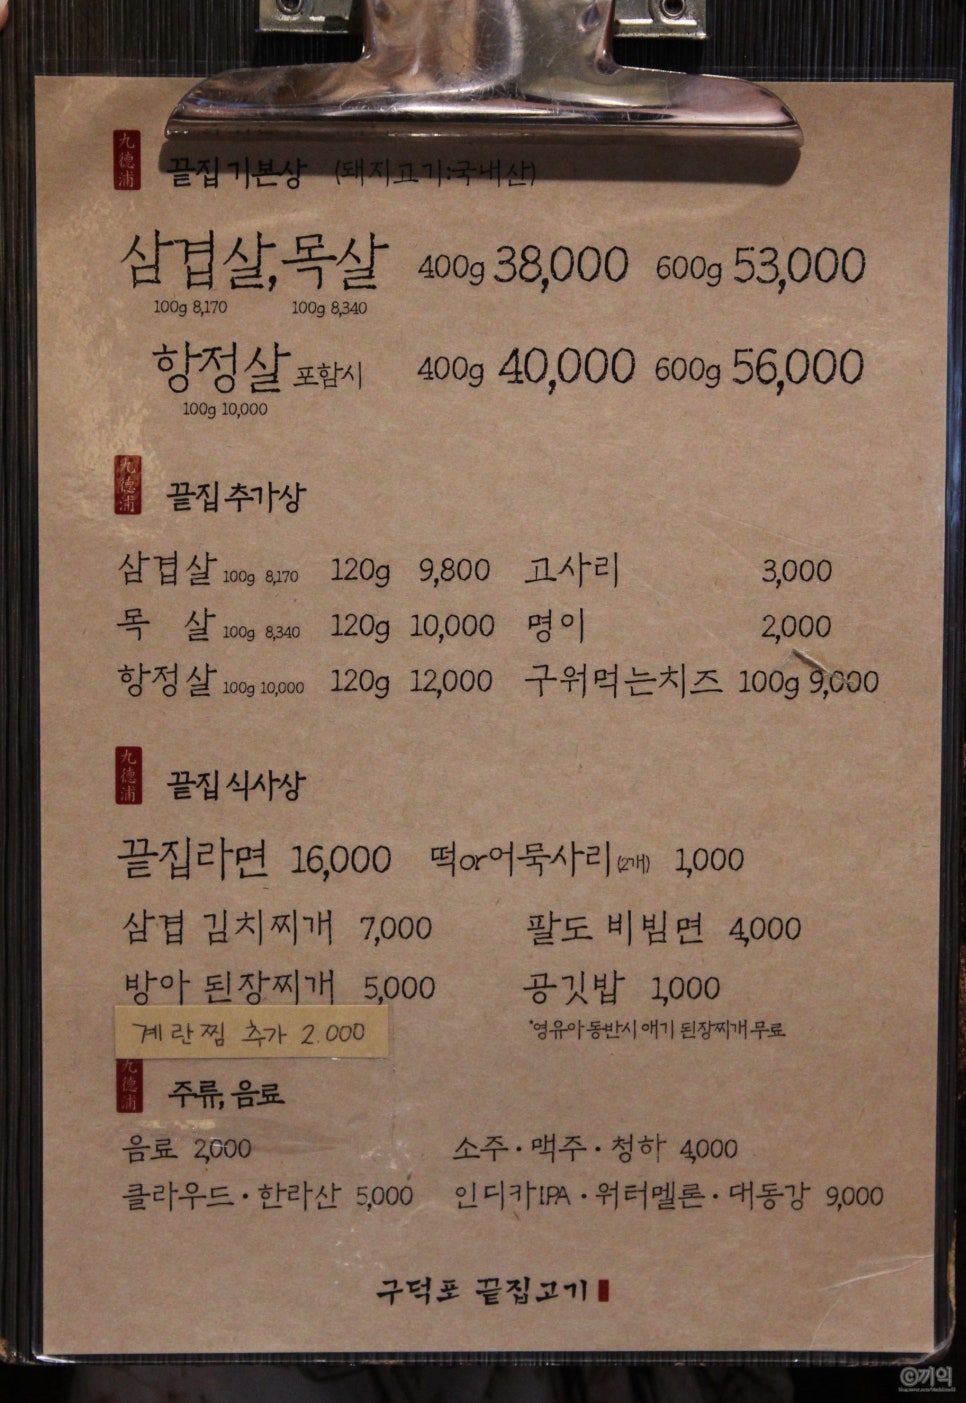 九德浦
끝집 기본상 (돼지고기:국내산)
삼겹살, 목살 400g 38,000 600g 53,000
100g 8,170 100g 8,340
항정살 포함시 400g 40,000 600g 56,000
100g 10,000
九德浦
끝집 추가상
삼겹살 100g 8,170 120g 9,800 고사리 3,000
목 살 100g 8,340 120g 10,000 명이 2,000
항정살 100g 10,000 120g 12,000 구워먹는치즈 100g 9,000
九德浦
끝집 식사상
끝집라면 16,000 떡or어묵사리(2개) 1,000
삼겹 김치찌개 7,000 팔도 비빔면 4,000
방아 된장찌개 5,000 공깃밥 1,000
계란찜 추가 2.000 *영유아 동반시 애기 된장찌개 무료
九德浦
주류, 음료
음료 2,000 소주·맥주·청하 4,000
클라우드·한라산 5,000 인디카IPA·워터멜론·대동강 9,000
구덕포 끝집고기
©끼익